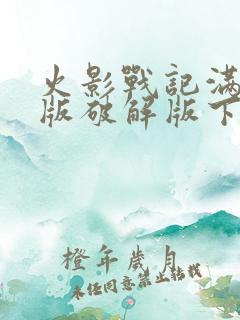 火影戰記滿
版破解版下
橙年歲月
未經同意禁止轉載